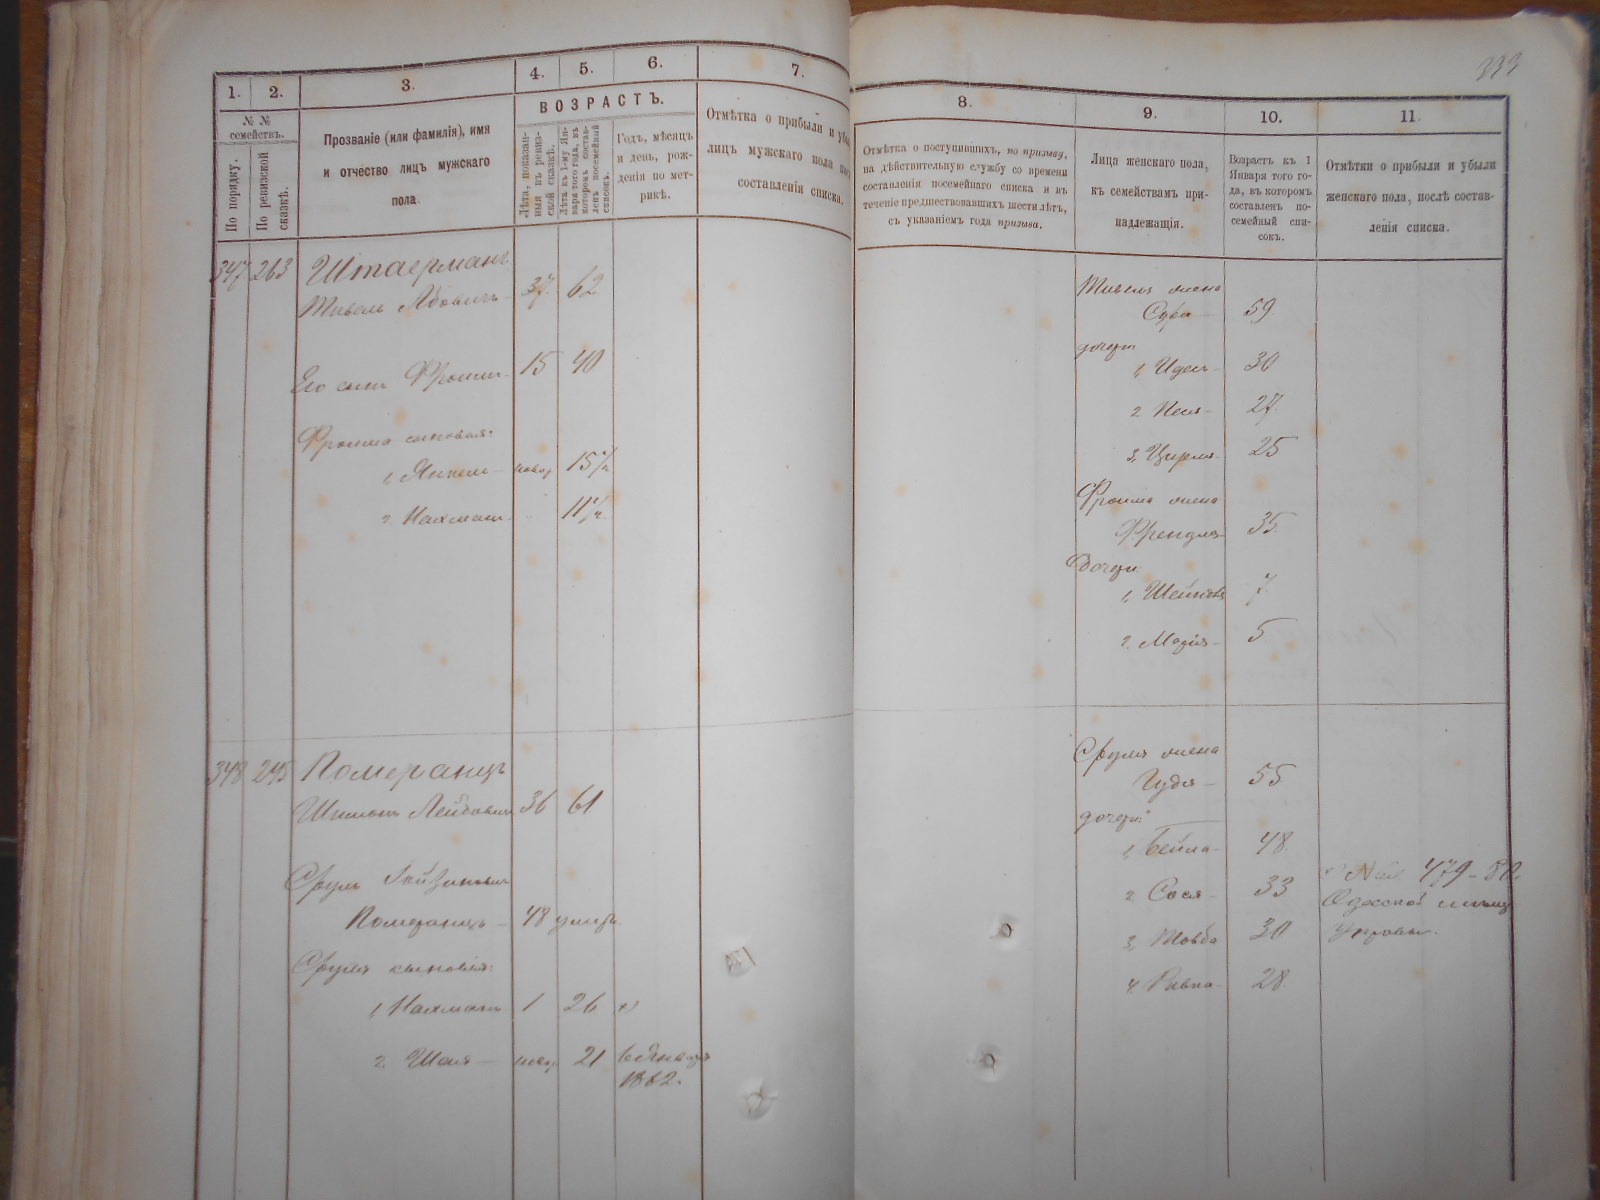 333
1.
2.
3.
4.
5.
6.
7.
8.
9.
10.
11.
№ №
семействъ.
По порядку.
По ревизской
сказкѣ.
Прозваніе (или фамилія), имя
и отчество лицъ мужскаго
пола.
ВОЗРАСТЪ.
Лѣта, показан-
ныя въ ревиз-
ской сказкѣ.
Лѣта къ 1-му Ян-
варя того года, въ
которомъ состав-
ленъ посемейный
списокъ.
Годъ, мѣсяцъ
и день, рож-
денія по мет-
рикѣ.
Отмѣтка о прибыли и убы
лицъ мужскаго пола пос
составленія списка.
Отмѣтка о поступившихъ, по призыву,
на дѣйствительную службу со времени
составленія посемейнаго списка и въ
теченіе предшествовавшихъ шести лѣтъ,
съ указаніемъ года призыва.
Лица женскаго пола,
къ семействамъ при-
надлежащія.
Возрастъ къ 1
Января того го-
да, въ которомъ
составленъ по-
семейный спи-
сокъ.
Отмѣтки о прибыли и убыли
женскаго пола, послѣ состав-
ленія списка.
347 263 Штаерманъ
Тивель Абовичъ 37 62
Его сынъ Фроимъ 15 40
Фроима сыновья:
1, Янкель новор 15 1/2
2. Нахманъ " 11 1/2
Тивеля жена
Сура 59
дочери
1, Идесъ 30
2 Песя 27
3, Цирля 25
Фроима жена
Френдля 35
Дочери:
1, Шейнова 7
2. Марія 5
348 245 Померанцъ
Шимонъ Лейбовичъ 36 61
Сруль
Померанцъ 48 умеръ
Сруля сыновья:
1, Нахманъ 1 26
2. Шая новор 21 6 Января
1862.
Сруля жена
Гудя 55
дочери:
1, Бейла 48
2 Сося 33
3, Товба 30
4, Ривка 28
479
Одесской мѣщ
Управы.